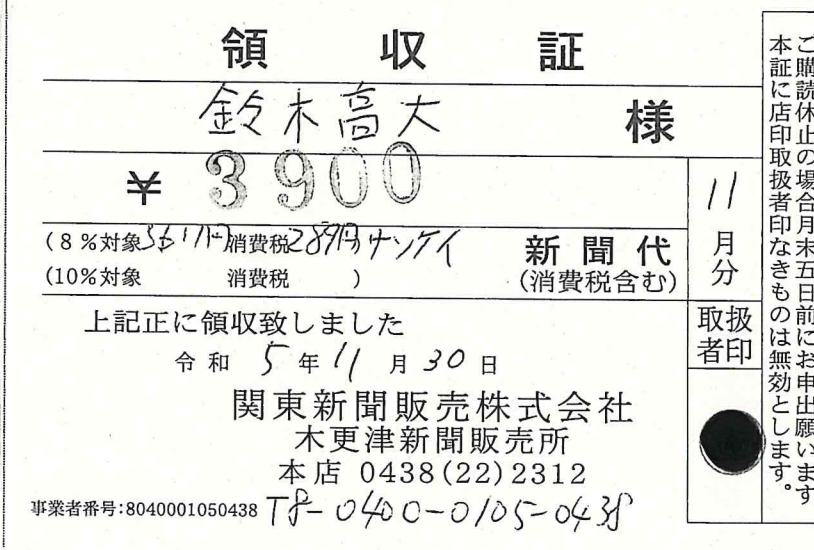 領収証
鈴木高大 様
¥ 3900
11月分
(8%対象 3611円 消費税 289円 サンケイ
(10%対象 消費税 )
新聞代
(消費税含む)
取扱者印
上記正に領収致しました
令和 5年 11月 30日
関東新聞販売株式会社
木更津新聞販売所
本店 0438(22)2312
事業者番号:8040001050438 T8-0400-0105-0438
ご購読休止の場合月末五日前にお申出願います
本証に店印取扱者印なきものは無効とします。